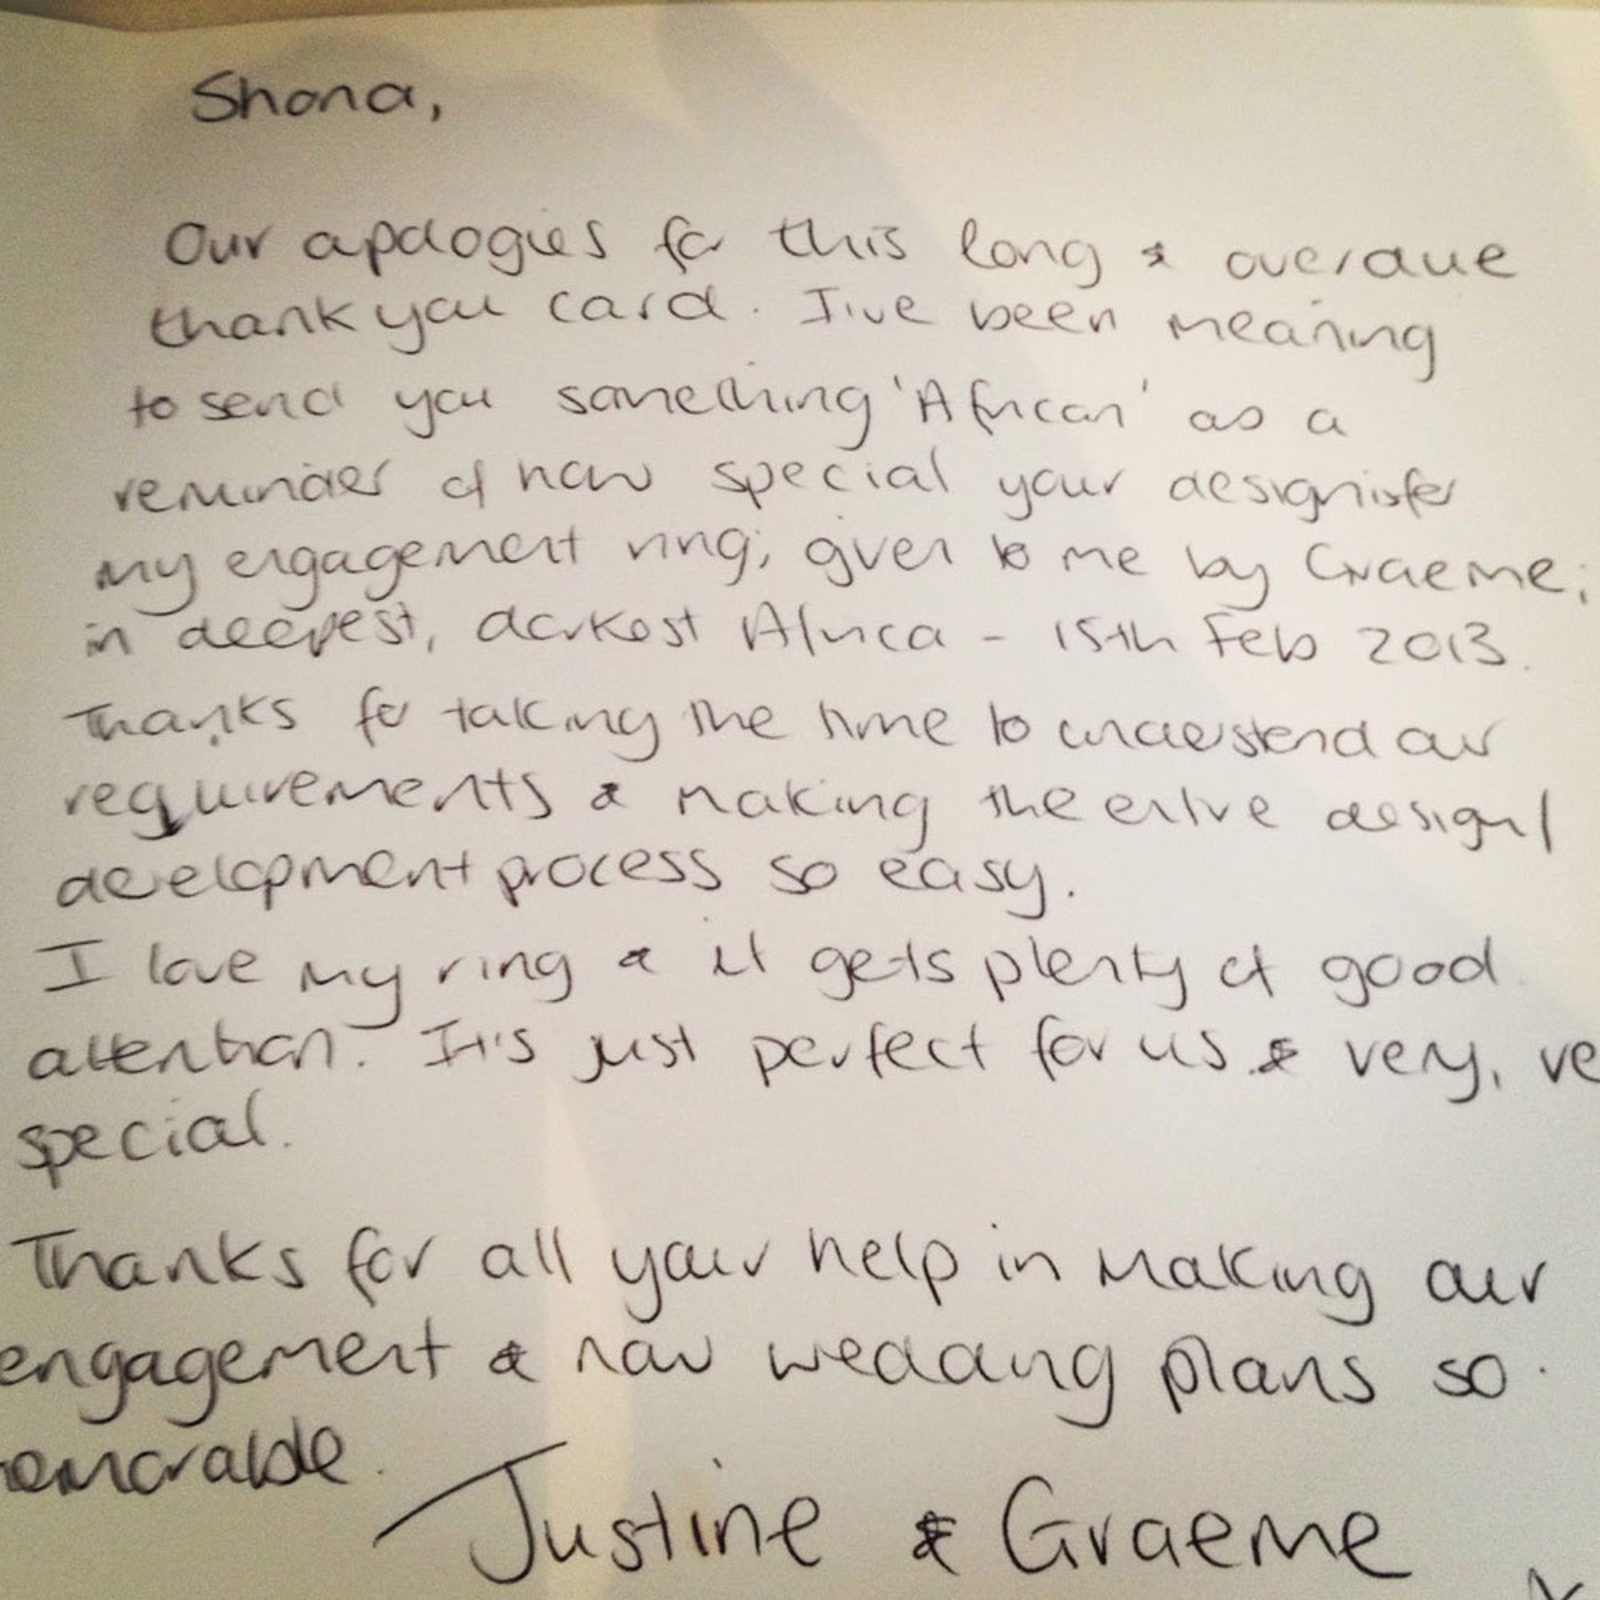 Shona,
Our apologies for this long & overdue
thank you card. I've been meaning
to send you something 'African' as a
reminder of how special your design is for
my engagement ring; given to me by Graeme;
in deepest, darkest Africa - 15th Feb 2013.
Thanks for taking the time to understand our
requirements & making the entire design/
development process so easy.
I love my ring & it gets plenty of good
attention. It's just perfect for us & very, ve
special.
Thanks for all your help in making our
engagement & now wedding plans so
emorable.
Justine & Graeme
x